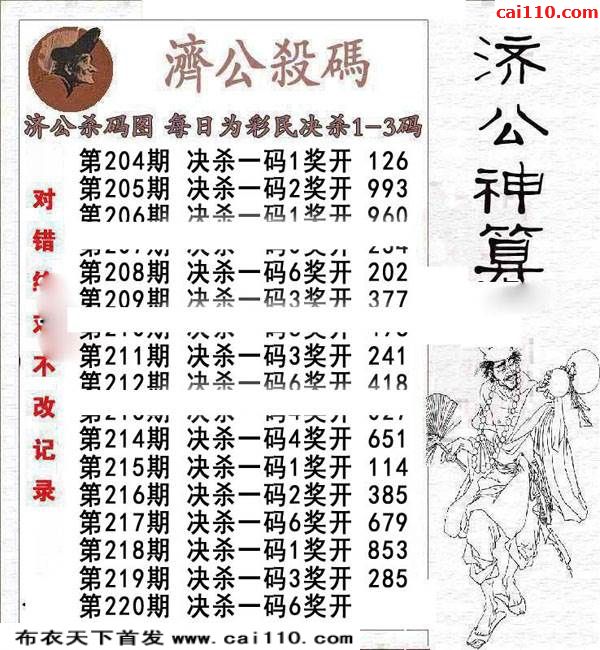 cai110.com
濟公殺碼
济公杀码图 每日为彩民决杀1-3码
第204期 决杀一码1奖开 126
第205期 决杀一码2奖开 993
第206期 决杀一码1奖开 960
第208期 决杀一码6奖开 202
第209期 决杀一码3奖开 377
第211期 决杀一码3奖开 241
第212期 决杀一码6奖开 418
第214期 决杀一码4奖开 651
第215期 决杀一码1奖开 114
第216期 决杀一码2奖开 385
第217期 决杀一码6奖开 679
第218期 决杀一码1奖开 853
第219期 决杀一码3奖开 285
第220期 决杀一码6奖开
对错
不改记录
济公神算
布衣天下首发 www.cai110.com